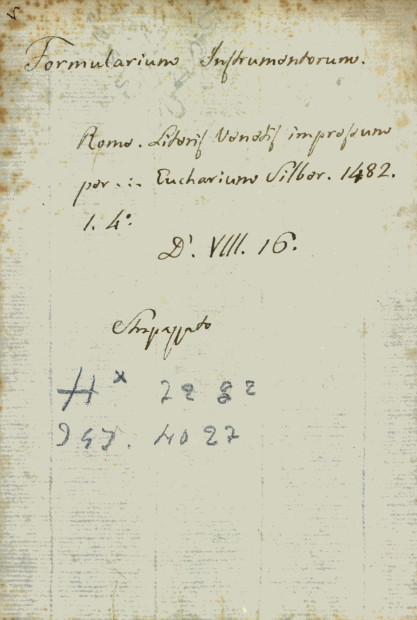 Formularium Instrumentorum.
Rome. Literis Venetis impressum
per . : . Eucharium Silber. 1482.
1. 4°.
D'. VIII. 16.
Strapazzato
H x 7282
IGI. 4027